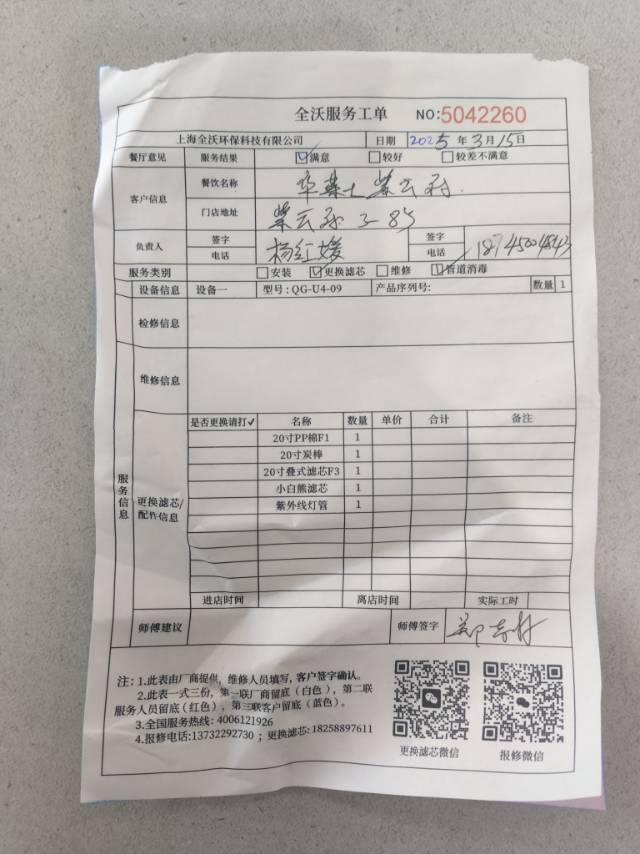 全沃服务工单 NO:5042260
上海全沃环保科技有限公司 日期 2025 年 3 月 15 日
餐厅意见 服务结果 ☑满意 □较好 □较差不满意
客户信息 餐饮名称 华莱士紫云
门店地址 紫云 3-85
负责人 签字 杨红媛 签字
电话 电话 18745004843
服务类别 □安装 ☑更换滤芯 □维修 ☑管道消毒
服务信息
设备信息 设备一 型号:QG-U4-09 产品序列号: 数量 1
检修信息
维修信息
更换滤芯/配件信息
是否更换请打✓ 名称 数量 单价 合计 备注
20寸PP棉F1 1
20寸炭棒 1
20寸叠式滤芯F3 1
小白熊滤芯 1
紫外线灯管 1
进店时间 离店时间 实际工时
师傅建议 师傅签字 郑
注：1.此表由厂商提供，维修人员填写，客户签字确认。
2.此表一式三份，第一联厂商留底（白色），第二联
服务人员留底（红色），第三联客户留底（蓝色）。
3.全国服务热线: 4006121926
4.报修电话:13732292730；更换滤芯:18258897611
更换滤芯微信 报修微信